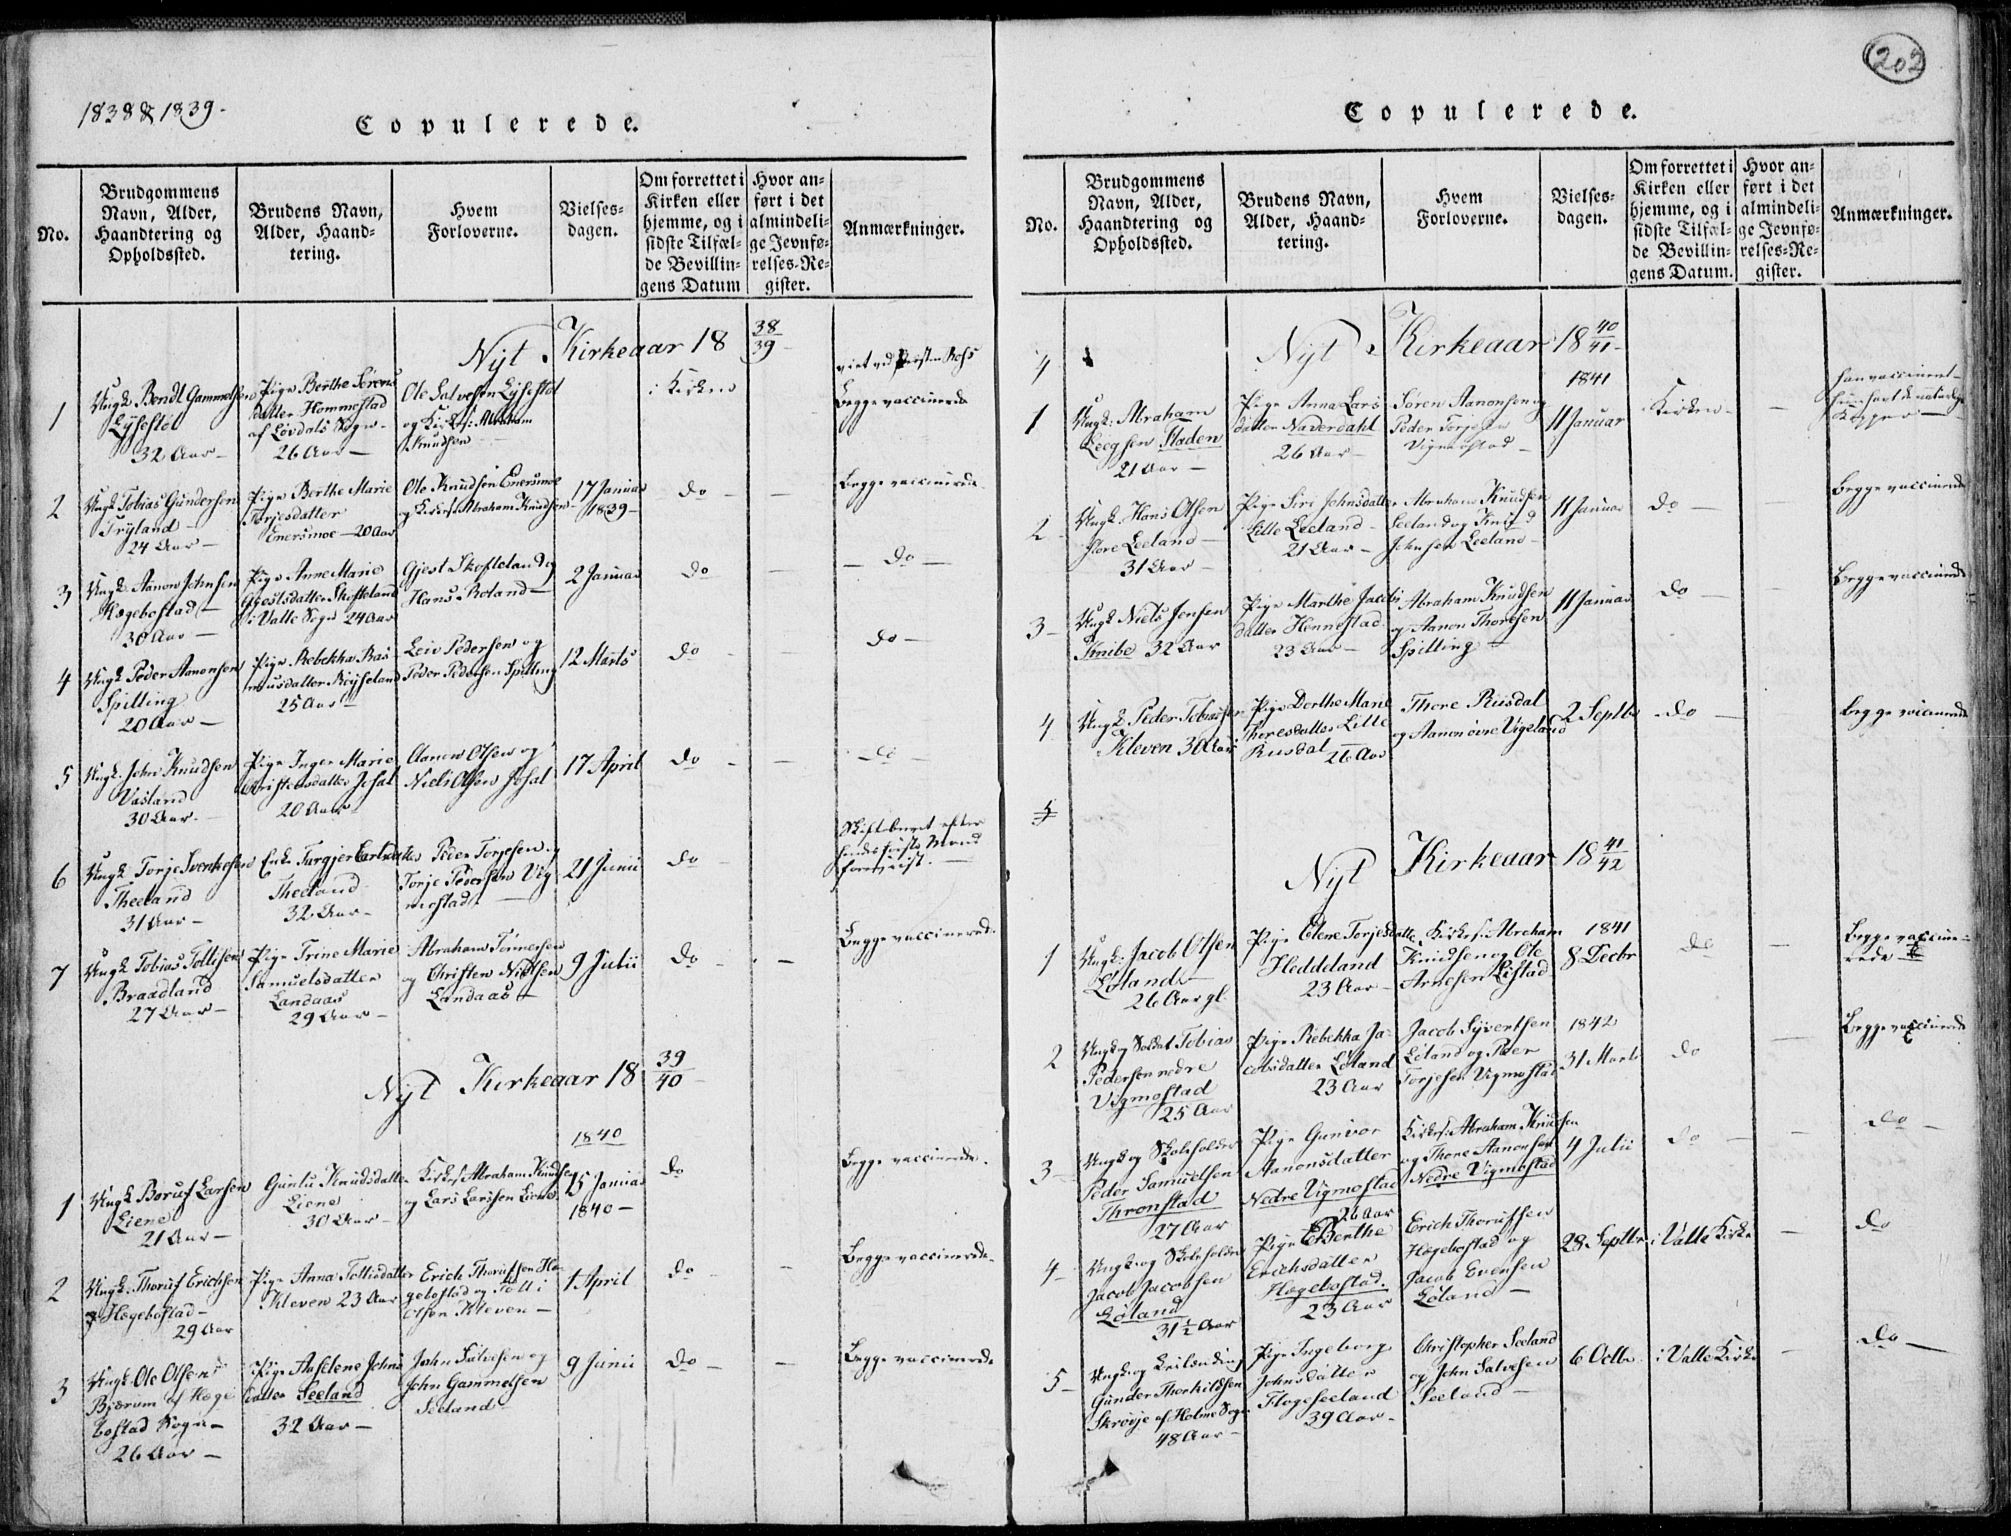 1838 & 1839.
Copulerede.
No.
Brudgommens
Navn, Alder,
Haandtering og
Opholdssted.
Brudens Navn,
Alder, Haand-
tering.
Hvem
Forloverne.
Vielses-
dagen.
Om forrettet i
Kirken eller
hjemme, og i
sidste Tilfæl-
de Bevillin-
gens Datum
Hvor an-
ført i det
almindeli-
ge Jevnfø-
relses-Re-
gister.
Anmærkninger.
Nyt Kirkeaar 18 38/39
1
Ungk. Bendt Gammelsen
Lysestøl
32 Aar
Pige Berthe Sørens
datter Hommestad
af Løvdals Sogn
26 Aar
Ole Salvesen Lysestøl
og Kirks: Abraham
Knudsen
i Kirken
viet ved
Begge vaccinerede
2
Ungk Tobias Gundersen
Tryland
24 Aar
Pige Berthe Marie
Torjesdatter
Enersmoe 20 Aar
Ole Knudsen Enersmoe
og Kirks: Abraham Knudsen
17 Januar
1839
do
Begge vaccinerede
3
Ungk. Aanon Johnsen
Hægebostad
30 Aar
Pige Anne Marie
Gjestsdatter Skofteland
i Valle Sogn 24 Aar
Gjest Skofteland og
Hans Roland
2 Januar
do
do
4
Ungk Peder Aanonsen
Spilling
20 Aar
Pige Rebekka Ras
musdatter Røyseland
25 Aar
Leiv Pedersen og
Peder Pedersen Spilling
12 Marts
do
do
5
Ungk. John Knudsen
Vasland
30 Aar.
Pige Inger Marie
Christensdatter Josal
20 Aar
Aanen Olsen og
Niels Olsen Josal
17 April
do
do
6
Ungk. Torje Svenkesen
Theeland
31 Aar
Enke Turgjer Carlsdatter
Theeland
32 Aar
Peder Torjesen og
Torje Pedersen Vig
mostad.
21 Junii
do
Skiftebrevet efter
hendes første Mand
foreviist.
7
Ungk Tobias Tollisen
Braadland
27 Aar
Pige Trine Marie
Samuelsdatter
Landaas
29 Aar
Abraham Tønnesen
og Christen Nielsen
Landaas
9 Julii
do
Begge vaccinerede.
Nyt Kirkeaar 18 39/40
1840
1
Ungk Boruf Larsen
Liene
21 Aar
Guntu Knudsdatter
Liene
30 Aar
Kirks: Abraham Knudsen
og Lars Larsen Liene
25 Januar
1840
do
Begge vaccinerede.
2
Ungk. Thoruf Erichsen
Hægebostad
29 Aar
Pige Anna Tollisdatter
Kleven 23 Aar
Erich Thorufsen Hæ
gebostad og Tolli
Olsen Kleven
1 April
do
Begge vaccinerede
3
Ungk. Ole Olsen
Bjerum af Hæge
bostad Sogn
26 Aar
Pige Aaselene Johns
datter Seeland
32 Aar
John Salvesen og
John Gammelsen
Seeland
9 Junii
do
Begge vaccinerede
202
Copulerede.
No.
Brudgommens
Navn, Alder,
Haandtering og
Opholdssted.
Brudens Navn,
Alder, Haand-
tering.
Hvem
Forloverne.
Vielses-
dagen.
Om forrettet i
Kirken eller
hjemme, og i
sidste Tilfæl-
de Bevillin-
gens Datum.
Hvor an-
ført i det
almindeli-
ge Jevnfø-
relses-Re-
gister.
Anmærkninger.
4
Nyt Kirkeaar 18 40/41
1841
1
Ungk: Abraham
Staden
21 Aar
Pige Anna Lars
datter Naverdahl
26 Aar
Søren Aanonsen og
Peder Torjesen
Vigmostad
11 Januar
Kirken
han vaccineret
hun havt de naturlige
Kopper
2
Ungk. Hans Olsen
Store Leeland
31 Aar
Pige Siri Johnsdatter
Lille Leeland
21 Aar
Abraham Knudsen
Leeland og Knud
Johnsen Leeland
11 Januar
do
Begge vaccinerede
3
Ungk Niels Jensen
Knibe 32 Aar
Pige Marthe Jacobs
datter Hennestad
23 Aar
Abraham Knudsen
og Aanon Thoresen
Spilling
11 Januar
do
Begge vaccinerede
4
Ungk Peder Tobiassen
Kleven 30 Aar
Pige Dorthe Marie
Thoresdatter Lille
Rusdal 26 Aar
Thore Rusdal
og Aanon øvre Vigeland
2 Septbr
do
begge vaccinerede
5
Nyt Kirkeaar 18 41/42
1
Ungk: Jacob Olsen
Løland
26 Aar gl.
Pige Elene Torjesdatter
Heddeland
23 Aar
Kirkes: Abraham
Knudsen og Ole
Arnesen Listad
1841
8 Decbr
do
Begge vaccine-
rede
2
Ungk og Soldat Tobias
Pedersen nedre
Vigmostad
25 Aar
Pige Rebekka Ja-
cobsdatter Løland
23 Aar
Jacob Syvertsen
Løland og Peer
Torjesen Vigmostad
1842
31 Marts
do
Begge vaccinerede
3
Ungk og Skoleholder
Peder Samuelsen
Thronstad
27 Aar
Pige Gunvor
Aanonsdatter
Nedre Vigmostad
26 Aar
Kirks: Abraham Knudsen
og Thore Aanonsen
Nedre Vigmostad
4 Julii
do
do
4
Ungk og Skoleholder
Jacob Jacobsen
Løland
31 1/2 Aar
Pige Berthe
Erichsdatter
Hægebostad.
23 Aar
Erich Thorufsen
Hægebostad og
Jacob Evensen
Løland
28 Septbr
i Valle Kirke
do
5
Ungk og Leilænding
Gunder Thorkildsen
Skrøvje af Holme Sogn
48 Aar
Pige Ingeborg
Johnsdatter
Flogeseeland
39 Aar
Christopher Seeland
og John Salvesen
Seeland
6 Octbr
i Valle Kirke
do